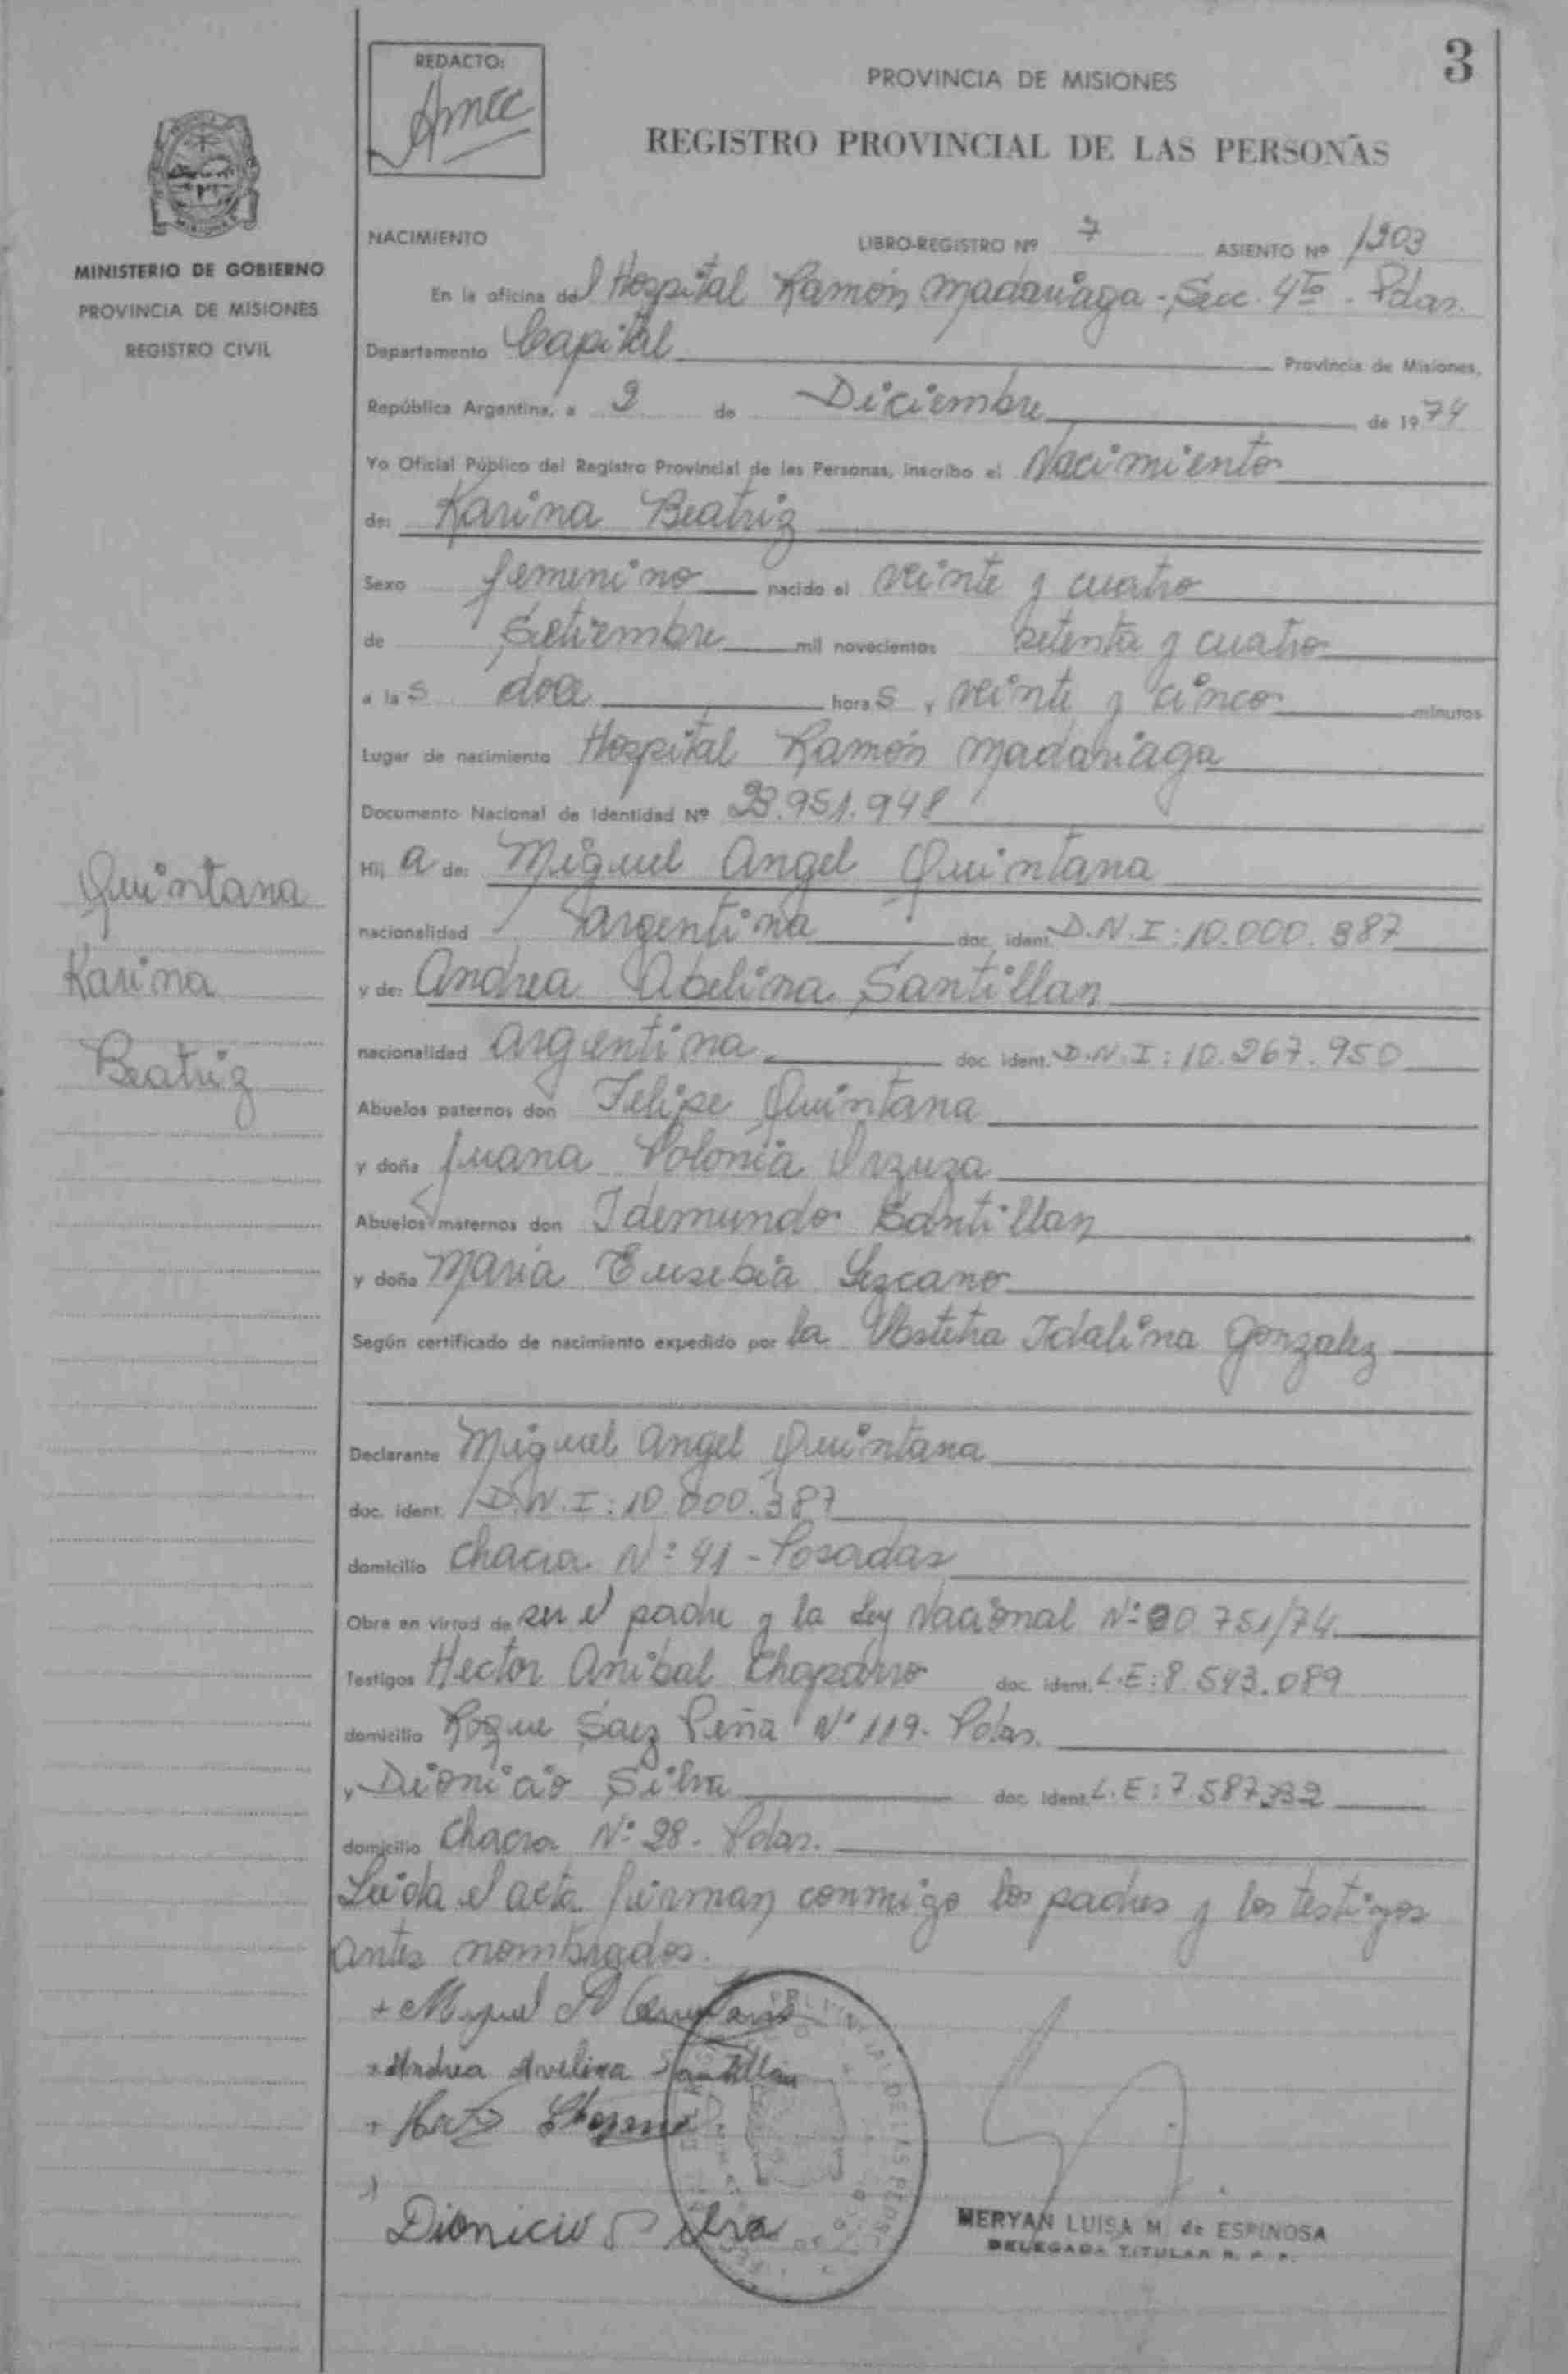 3
REDACTO:
PROVINCIA DE MISIONES
REGISTRO PROVINCIAL DE LAS PERSONAS
MINISTERIO DE GOBIERNO
PROVINCIA DE MISIONES
REGISTRO CIVIL
NACIMIENTO LIBRO-REGISTRO Nº 7 ASIENTO Nº 1203
En la oficina del Hospital Ramón Madariaga - Secc. 4ta - Pdas.
Departamento Capital Provincia de Misiones,
República Argentina, a 2 de Diciembre de 1974
Yo Oficial Público del Registro Provincial de las Personas, inscribo el Nacimiento
de: Karina Beatriz
Sexo femenino nacido el veinte y cuatro
de Setiembre mil novecientos setenta y cuatro
a las doce horas y veinte y cinco minutos
Lugar de nacimiento Hospital Ramón Madariaga
Documento Nacional de Identidad Nº 23.951.948
Hija de: Miguel Angel Quintana
nacionalidad argentina doc. ident. D.N.I: 10.000.387
y de: Andrea Abelina Santillan
nacionalidad argentina doc. ident. D.N.I: 10.267.950
Abuelos paternos don Felipe Quintana
y doña Juana Polonia
Abuelos maternos don Idemundo Santillan
y doña Maria Eusebia Lezcano
Según certificado de nacimiento expedido por la Obstetra Idalina Gonzalez
Declarante Miguel Angel Quintana
doc. ident. D.N.I: 10.000.387
domicilio Chacra Nº 41 - Posadas
Obra en virtud de ser el padre y la Ley Nacional Nº 20.751/74
Testigos Hector Anibal Chaparro doc. ident. L.E: 8.543.089
domicilio Roque Saez Peña Nº 119. Pdas.
y Dionicio Silva doc. ident. L.E: 7.587.332
domicilio Chacra Nº 28. Pdas.
Leida el acta firman conmigo los padres y los testigos
antes nombrados.
Quintana
Karina
Beatriz
Miguel A Quintana
Andrea Avelina Santillan
Dionicio Silva
MERYAN LUISA M. de ESPINOSA
DELEGADA TITULAR R. P. P.